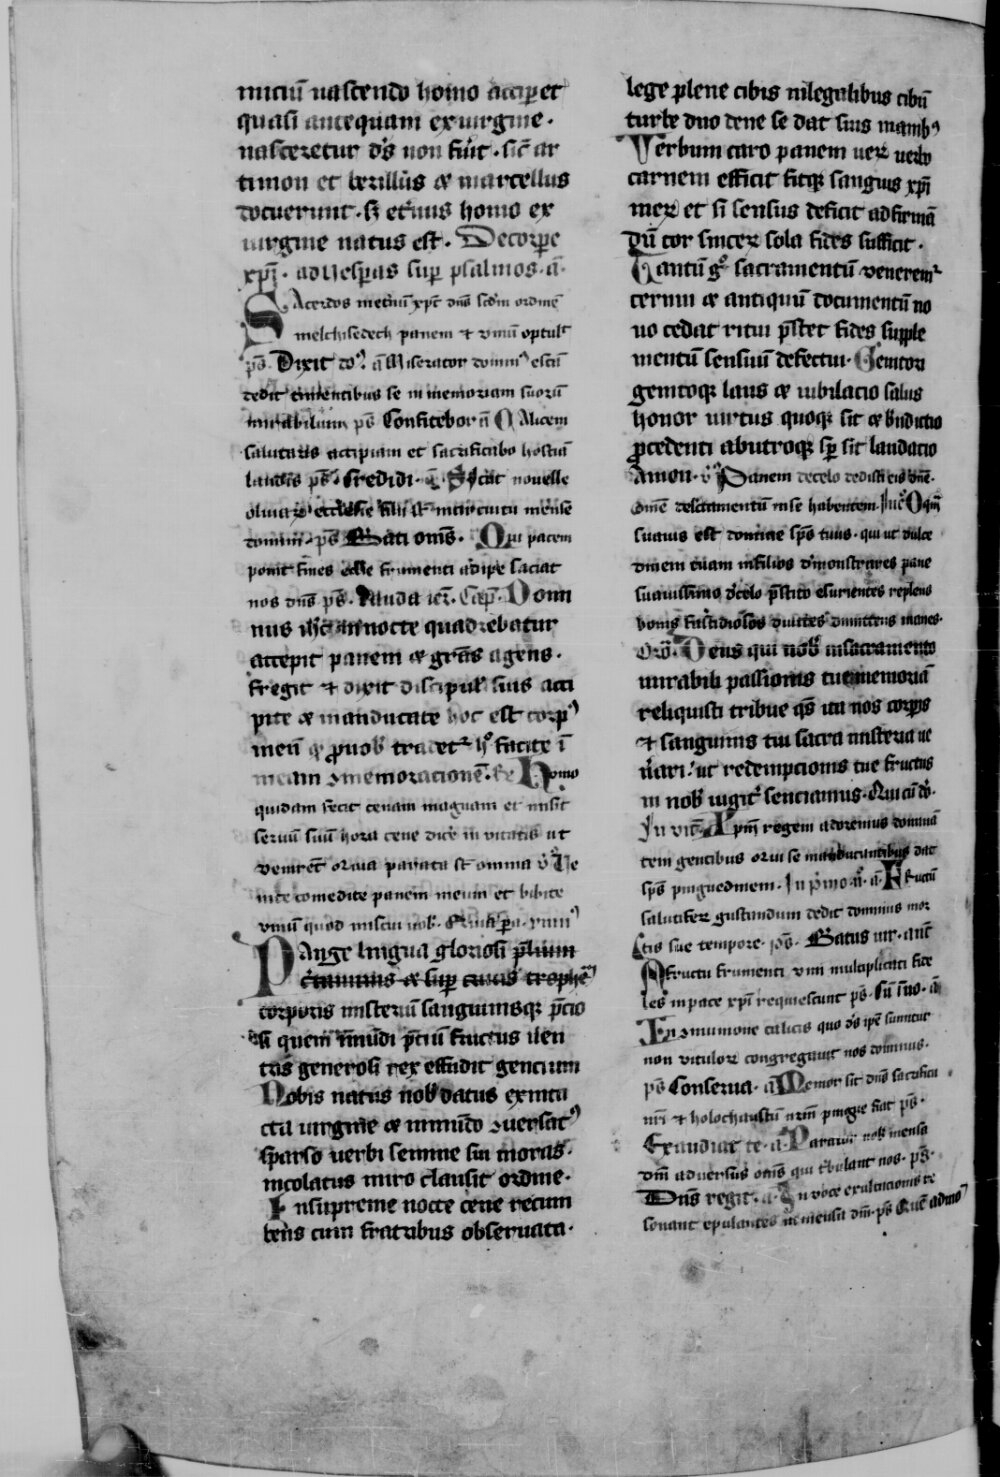 niciu̅ nascendo homo acciperet
quasi antequam exuirgine·
nasceretur ds̅ non fu̅it· sic̅ ar
timon et berillus & marcellus
docuerunt· s; et̅nus homo ex
uirgine natus est· Decorp̲e
xp̅i· aduesp̲as sup̲ psalmos· a̅·
SAcerdos in et̅nu̅ xpc̅ dn̅s scdm̅ ordine̅
melchisedech panem & uinu̅ optulit
ps̅· Dixit do· a̅ Miserator domin᷒ esca̅
dedit timentibus se in memoriam suoru̅
mirabilium ps̅ Confitebor a̅ Calicem
salutaris accipiam et sacrificabo hostia̅
laudis ps̅· Credidi· a̅· Sicut nouelle
oliuar̅ ecclesie filii st̅ incircuitu mense
domini· ps̅ Beati om̅s· Qui pacem
ponit fines eccl̅e frumenti adipe saciat
nos dn̅s ps̅· Lauda ier̅· Cap̅· Domi
nus ih̅c in nocte qua tradebatur
accepit panem & gr̅as agens·
fregit & dixit discipul̅ suis acci
pite & manducate hoc est corp᷒
meu̅ q̅ pro uob̅ tradet᷑ h᷒ facite i̅
meam 9memoracione̅· Re̅ Homo
quidam fecit cenam magnam et misit
seruu̅ suu̅ hora cene dice̅ inuitatis ut
uenire̅t quia parata st̅ omnia v̅ Ve
nite comedite panem meum et bibite
uinu̅ quod miscui uob̅·
PAnge lingua gloriosi p̅lium
c̅taminis & sup̲ crucis trophe᷒
corporis misteriu̅ sanguinisq; p̅cio
si quem i̅mu̅di p̅ciu̅ fructus uen
tris generosi rex effudit gencium
Nobis natus nob̅ datus ex inta
cta uirgine & inmu̅do 9uersat᷒
sparso uerbi semine sui moras·
incolatus miro clausit ordine·
Insupreme nocte cene recum
bens cum fratribus obseruata·
lege plene cibis inlegalibus cibu̅
turbe duo dene se dat suis manib᷒
Verbum caro panem ueru̅ uerbo
carnem efficit fitq; sanguis xp̅i
meru̅ et si sensus deficit ad firma̅
du̅ cor sinceru̅ sola fides sufficit·
Tantu̅ g᷒ sacramentu̅ ueneremur
cernui & antiquu̅ documentu̅ no
uo cedat ritui p̅stet fides supple
mentu̅ sensuu̅ defectui· Genitori
genitoq; laus & iubilacio salus
honor uirtus quoq; sit & b̅ndictio
procedenti abutroq; sp̲ sit laudacio
Amen· v̅ Panem decelo dedisti eis om̅e·
Om̅e delectamentu̅ inse habentem· O q̅m
suauis est domine sp̅s tuus· qui ut dulce
dinem tuam infilios demonstrares pane
suauissimo decelo p̅stito esurientes replens
bonis fastidiosos diuites dimittens inanes·
Oro̅· Deus qui nob̅ insacramento
mirabili passionis tue memoria̅
reliquisti tribue q̅s ita nos corp̲is
& sanguinis tui sacra misteria ue
n̅ari· ut redempcionis tue fructus
in nob̅ iugit̅ senciamus· Qui cu̅ do·
In uit̅· Xp̅m regem adoremus domina̅
tem gentibus qui se manducantibus dat
sp̅s pinguedinem· In p̅mo n̅· a̅· Fructu̅
salutiferu̅ gustandum dedit dominus mor
tis sue tempore· ps̅· Beatus uir· an̅t
A fructu frumenti uini multiplicati fide
les in pace xp̅i requiescunt ps̅· Cu̅ i̅uo· a̅
In 9munione calicis quo ds̅ ip̅e sumitur
non uitulor̅ congregauit nos dominus·
ps̅ Conserua· a̅ Memor sit dn̅s sacrificii
nr̅i & holochaustu̅ nr̅m pingue fiat ps̅·
Exaudiat te· a̅· Paratur nob̅ mensa
dn̅i aduersus om̅s qui t̅bulant nos· ps̅·
Dn̅s regit· a̅· In uoce exultacionis re
sonant epulantes in mensa dn̅i· ps̅ Que̅ admo᷒